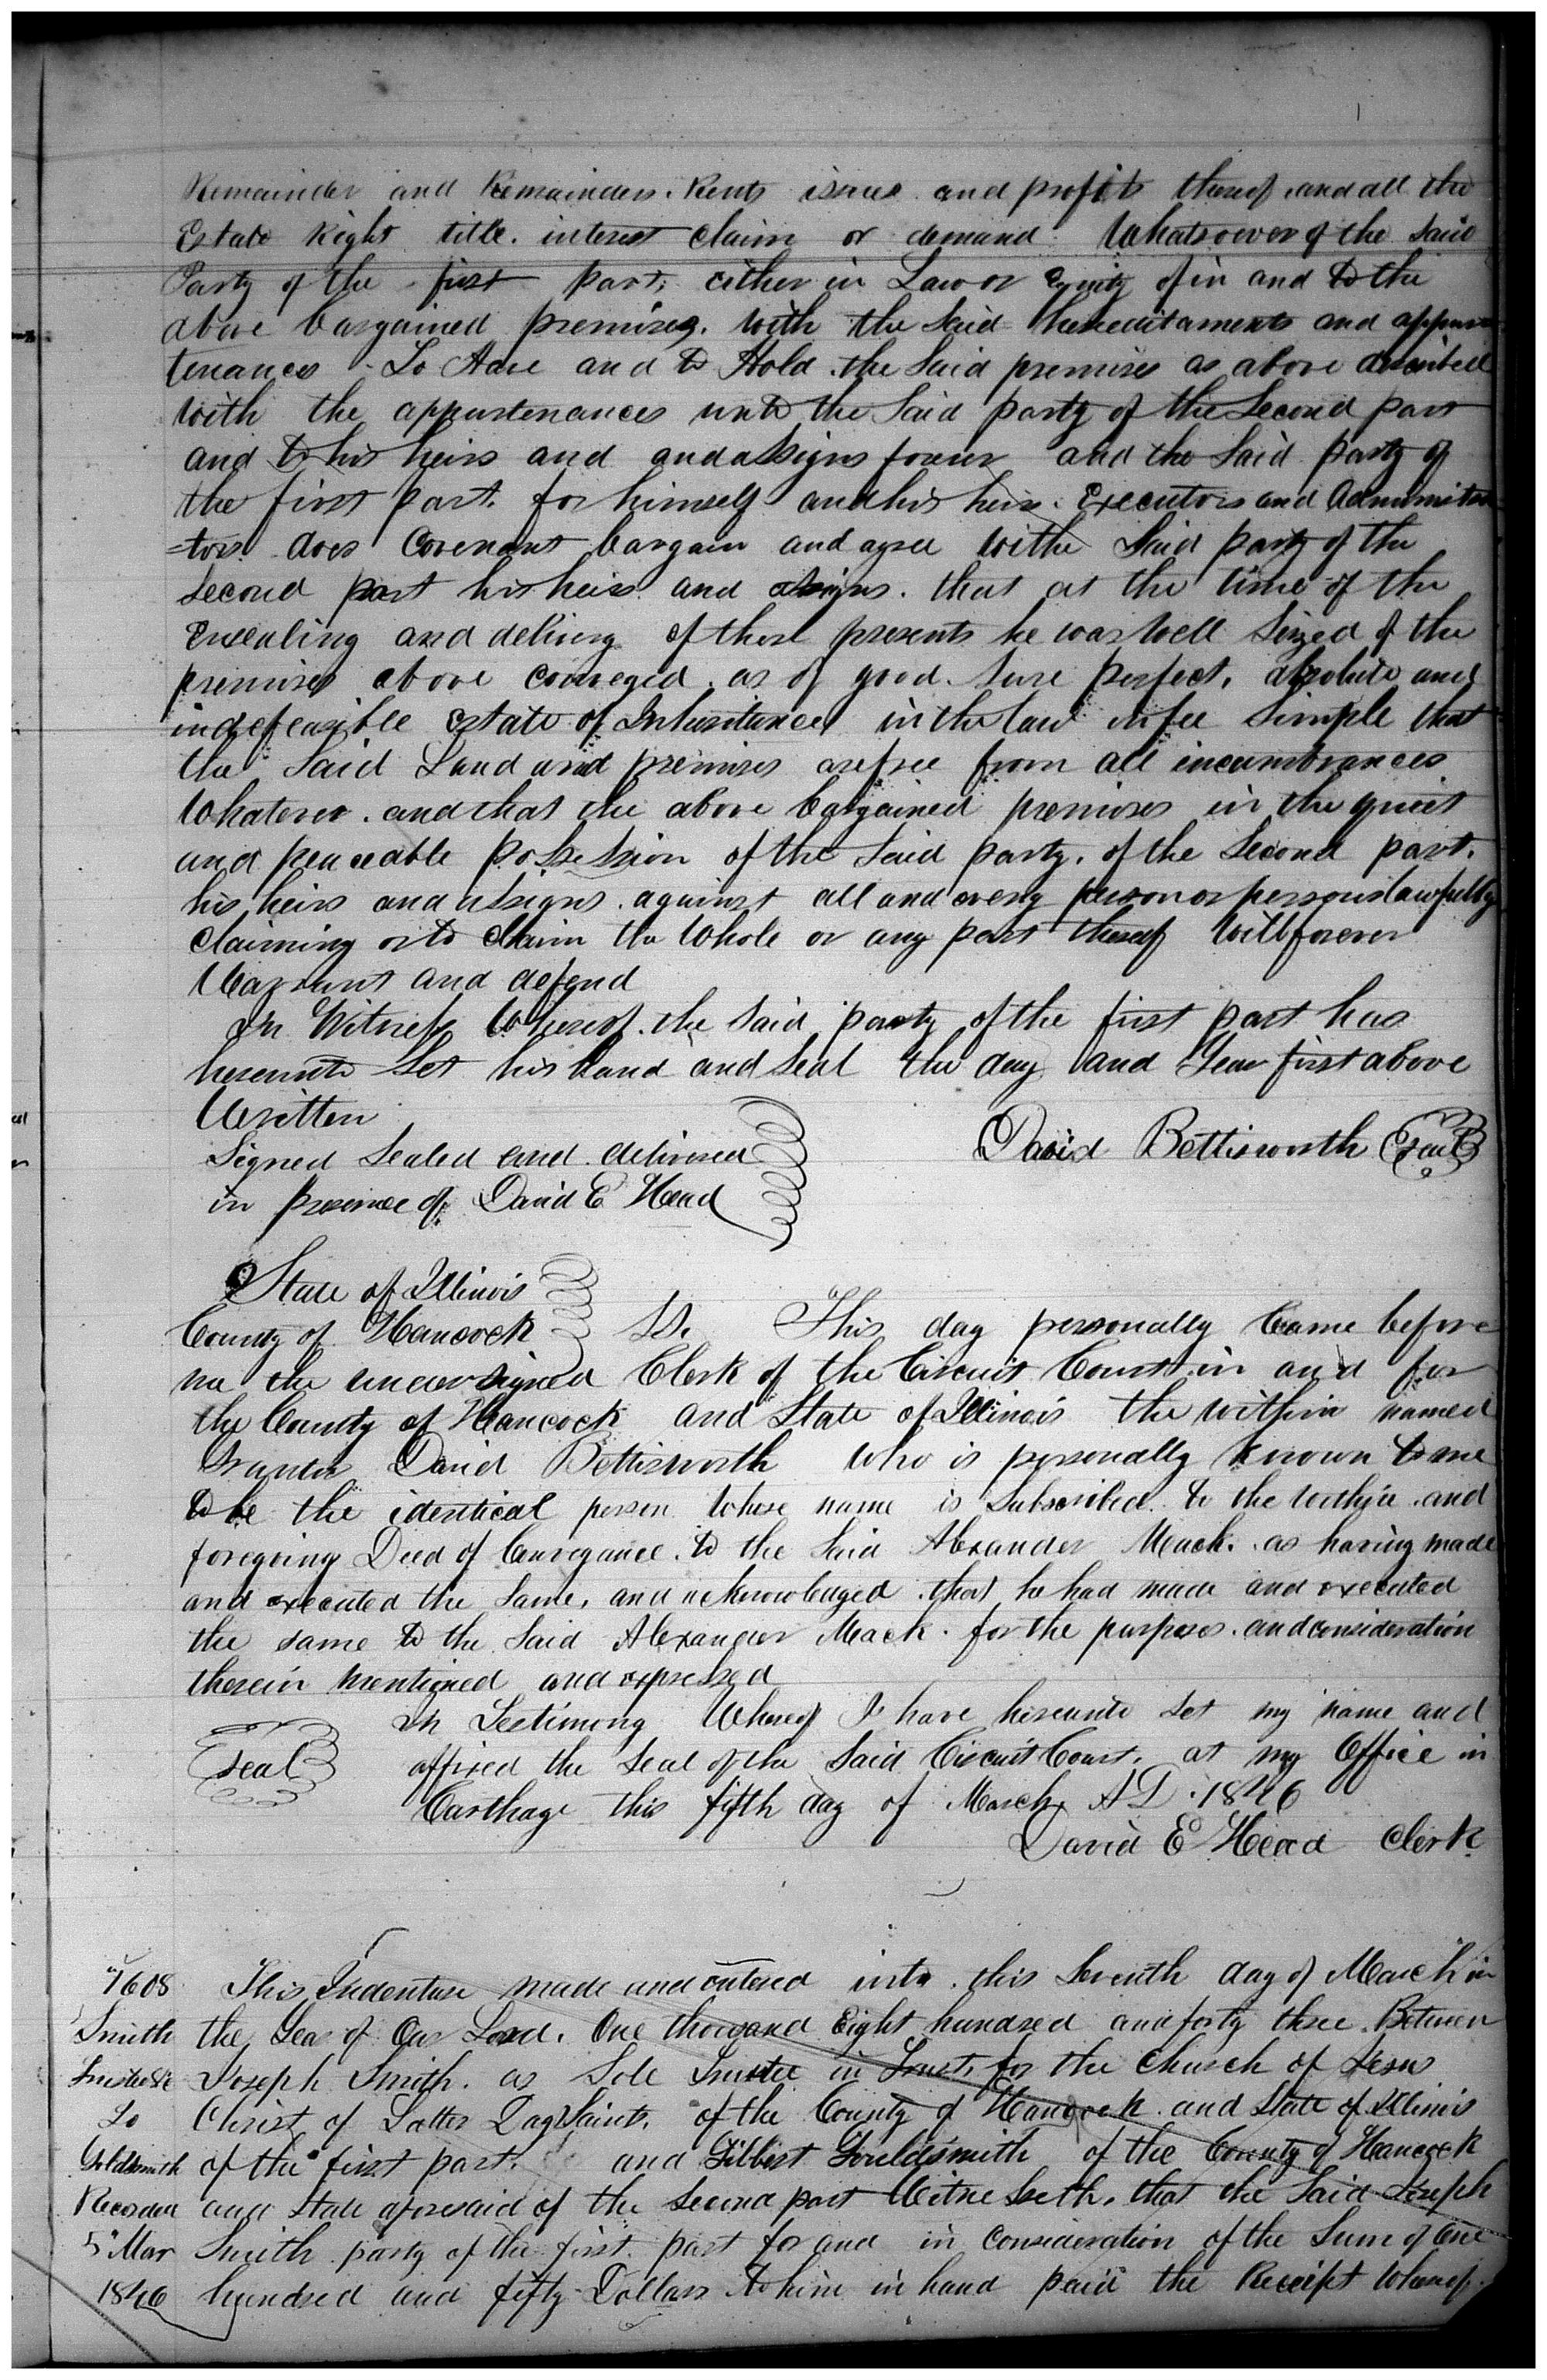 Remainder and Remainders. Rents issues and profits thereof. and all the
Estate Right title. interest claim or demand Whatsoever of the Said
Party of the first part. either in Law or Equity of in and to the
above bargained premises. With the Said hereditaments and appur
tenances To Have and to Hold the Said premises as above described
With the appurtenances unto the Said party of the Second part
and to his heirs and and assigns forever and the Said party of
the first part. for himself and his heirs. Executors and Administra
=tors does Covenant bargain and agree with Said party of the
Second part his heirs and assigns. that at the time of the
Ensealing and delivery of these presents he was Well Siezed of the
premises above conveyed. as of good. Sure perfect, absolute and
indefeasible Estate of Inheritance in the law in fee Simple that
the Said Land and premises are free from all incumbrances
Whatever. and that the above bargained premises in the quiet
and peaceable possession of the Said party. of the Second part.
his heirs and assigns. against all and every person or persons lawfully
Claiming or to Claim the Whole or any part thereof Will forever
Warrant and defend
In Witness Whereof. the Said party of the first part has
hereunto Set his hand and Seal the day and Year first above
Written
Signed Sealed and delivered David Bettisworth Seal
in presence of David E Head
State of Illinois
County of Hancock SS. This day personally Came before
me the undersigned Clerk of the Circuit Court in and for
the County of Hancock and State of Illinois the within named
Grantor David Bettisworth Who is personally Known to me
to be the identical person Whose name is Subscribed to the within and
foregoing Deed of Conveyance. to the Said Alexander Mack. as having made
and executed the Same, and acknowledged that he had made and executed
the same to the Said Alexander Mack. for the purposes. and consideration
therein mentioned and expressed
In Testimony Whereof I have hereunto Set my name and
Seal affixed the Seal of the Said Circuit Court, at my Office in
Carthage this fifth day of March AD. 1846
David E Head Clerk
7608 This Indenture made and entered into this Seventh day of March in
Smith the Year of Our Lord. One thousand Eight hundred and forty three. Between
Trustee &c Joseph Smith. as Sole Trustee in Trust, for the Church of Jesus
To Christ of Latter Day Saints. of the County of Hancock and State of Illinois
Goldsmith of the first part. and Gilbert Gouldsmith of the County of Hancock
Recorded and State aforesaid of the Second part Witnesseth. that the Said Joseph
5" Mar Smith party of the first part for and in Consideration of the Sum of One
1846 hundred and fifty Dollars to him in hand paid the Receipt Whereof